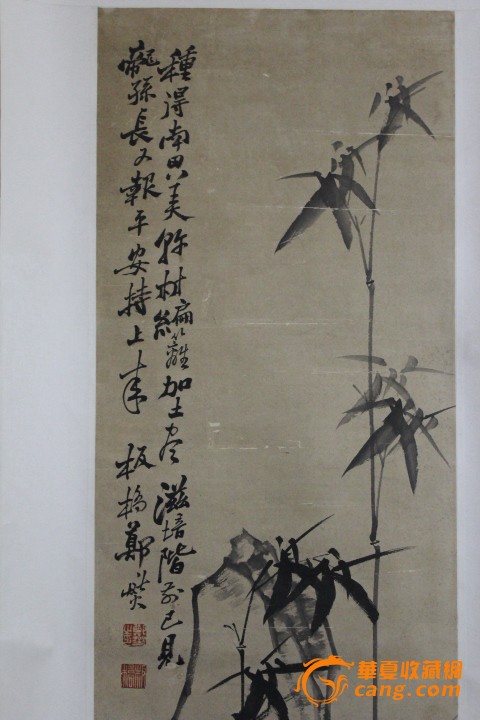 種得南田美幹材編籬加土盡滋培階前已見
龍孫長又報平安持上來 板橋鄭燮
華夏收藏網
cang.com